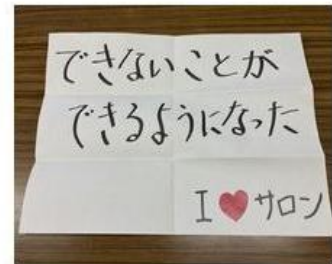 できないことが
できるようになった
I❤サロン